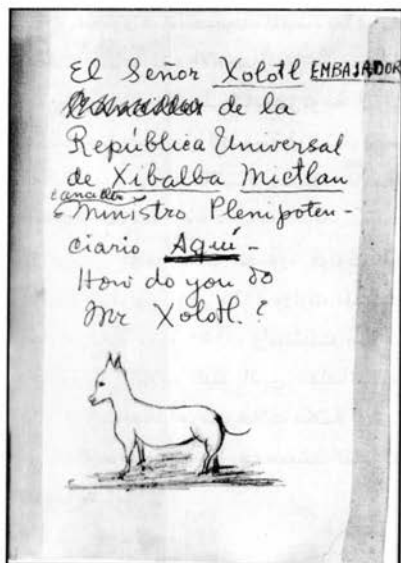 El Señor Xolotl EMBAJADOR
de la
República Universal
de Xibalba Mictlan
Ministro Plenipoten-
ciario Aquí-
How do you do
Mr Xolotl?